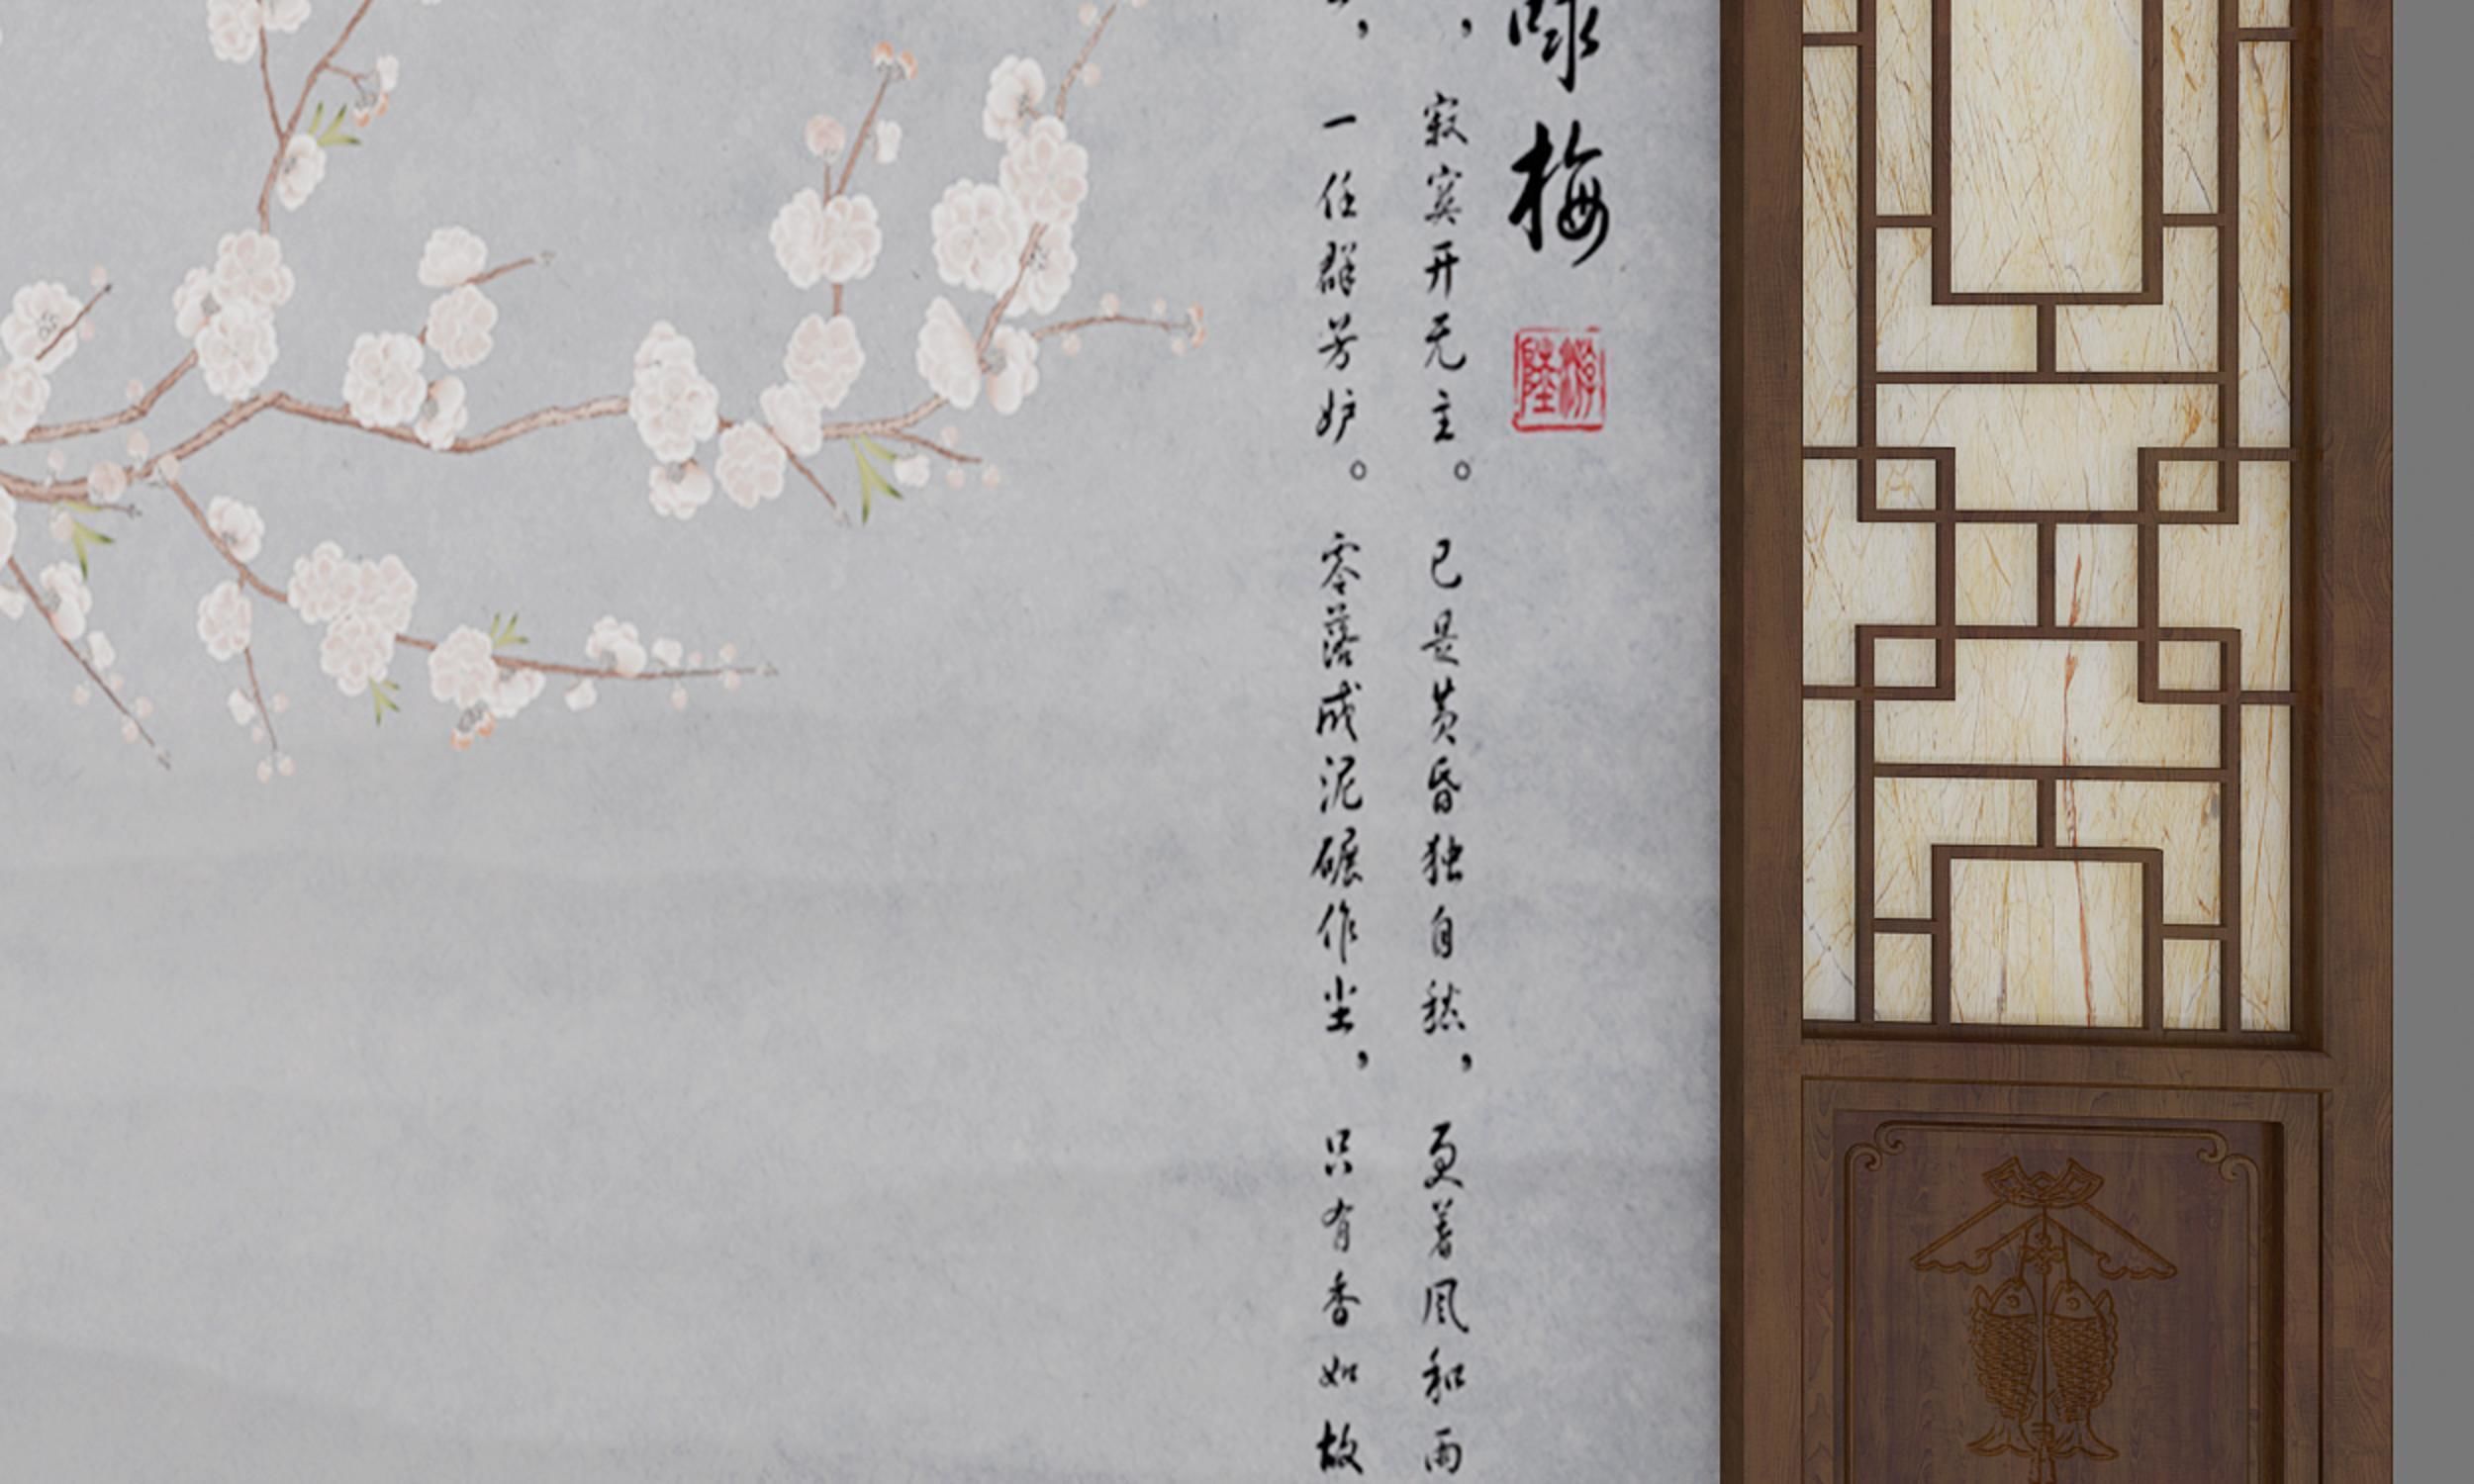 咏梅
陸游
，寂寞开无主。已是黄昏独自愁，更著风和雨
，一任群芳妒。零落成泥碾作尘，只有香如故